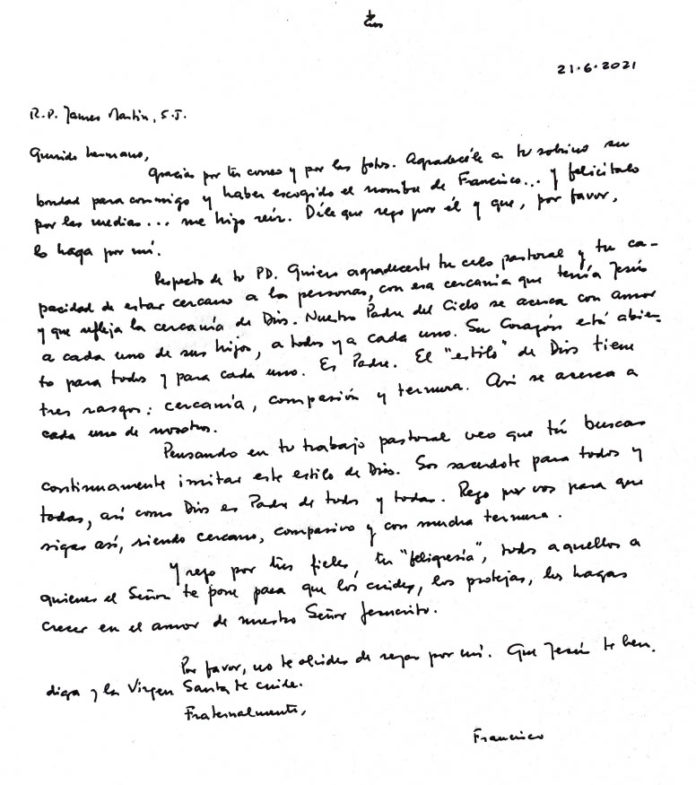 21.6.2021
R.P. James Martin, S.J.
Querido hermano,
Gracias por tu correo y por las fotos. Agradecéle a tu sobrino su
bondad para conmigo y haber escogido el nombre de Francisco... y felicitalo
por las medias... me hizo reír. Dile que rezo por él y que, por favor,
lo haga por mí.
Respecto de tu PD. Quiero agradecerte tu celo pastoral y tu ca-
pacidad de estar cercano a las personas, con esa cercanía que tenía Jesús
y que refleja la cercanía de Dios. Nuestro Padre del Cielo se acerca con amor
a cada uno de sus hijos, a todos y a cada uno. Su Corazón está abier-
to para todos y para cada uno. Es Padre. El "estilo" de Dios tiene
tres rasgos: cercanía, compasión y ternura. Así se acerca a
cada uno de nosotros.
Pensando en tu trabajo pastoral veo que tú buscas
continuamente imitar este estilo de Dios. Sos sacerdote para todos y
todas, así como Dios es Padre de todos y todas. Rezo por vos para que
sigas así, siendo cercano, compasivo y con mucha ternura.
Y rezo por tus fieles, tu "feligresía", todos aquellos a
quienes el Señor te pone para que los cuides, los protejas, los hagas
crecer en el amor de nuestro Señor Jesucristo.
Por favor, no te olvides de rezar por mí. Que Jesús te ben-
diga y la Virgen Santa te cuide.
Fraternalmente,
Francisco